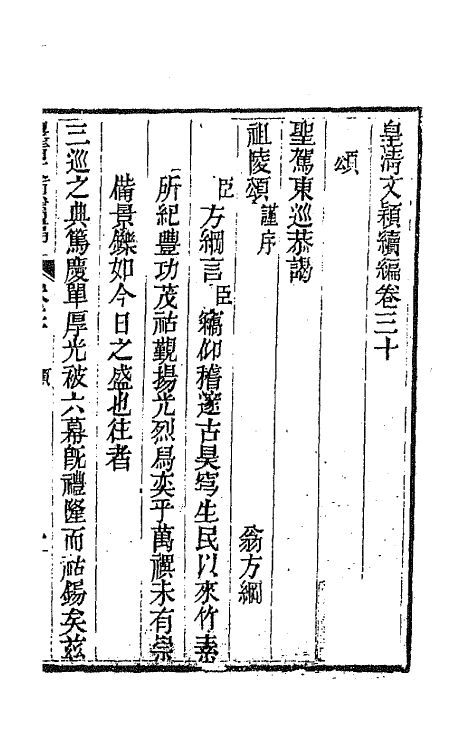 皇清文穎續編卷三十
頌
聖駕東巡恭謁
祖陵頌謹序
翁方綱
臣方綱言臣竊仰稽邃古昊穹生民以來竹素
所紀豐功茂祜覲揚光烈烏奕乎萬禩未有崇
備景鑠如今日之盛也往者
三巡之典篤慶單厚光被六幕既禮隆而祜錫矣茲